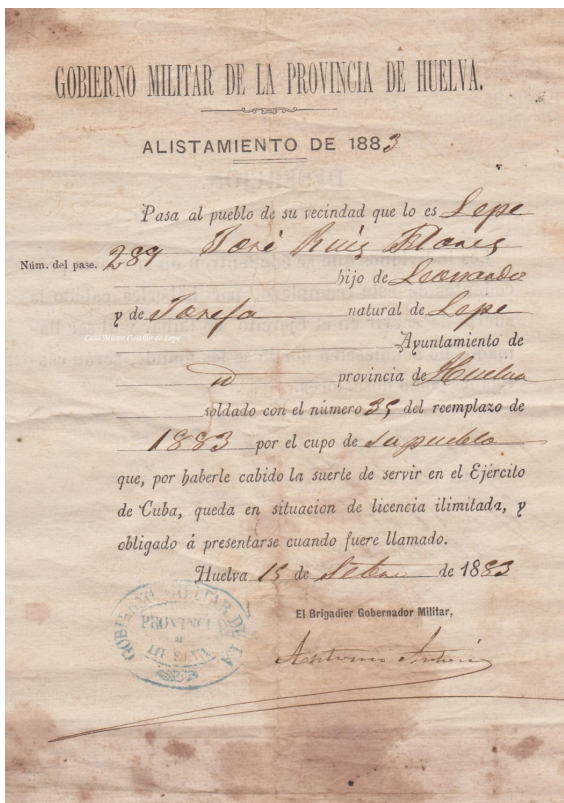 GOBIERNO MILITAR DE LA PROVINCIA DE HUELVA.
ALISTAMIENTO DE 1883
Pasa al pueblo de su vecindad que lo es Lepe
Núm. del pase. 289 José Ruiz Flores
hijo de Leonardo
y de Josefa natural de Lepe
Casa Museo Castillo de Lepe
Ayuntamiento de
id provincia de Huelva
soldado con el número 35 del reemplazo de
1883 por el cupo de su pueblo
que, por haberle cabido la suerte de servir en el Ejército
de Cuba, queda en situacion de licencia ilimitada, y
obligado á presentarse cuando fuere llamado.
Huelva 15 de Setbre de 1883
El Brigadier Gobernador Militar,
Antonio
GOBIERNO MILITAR DE LA
PROVINCIA
HUELVA